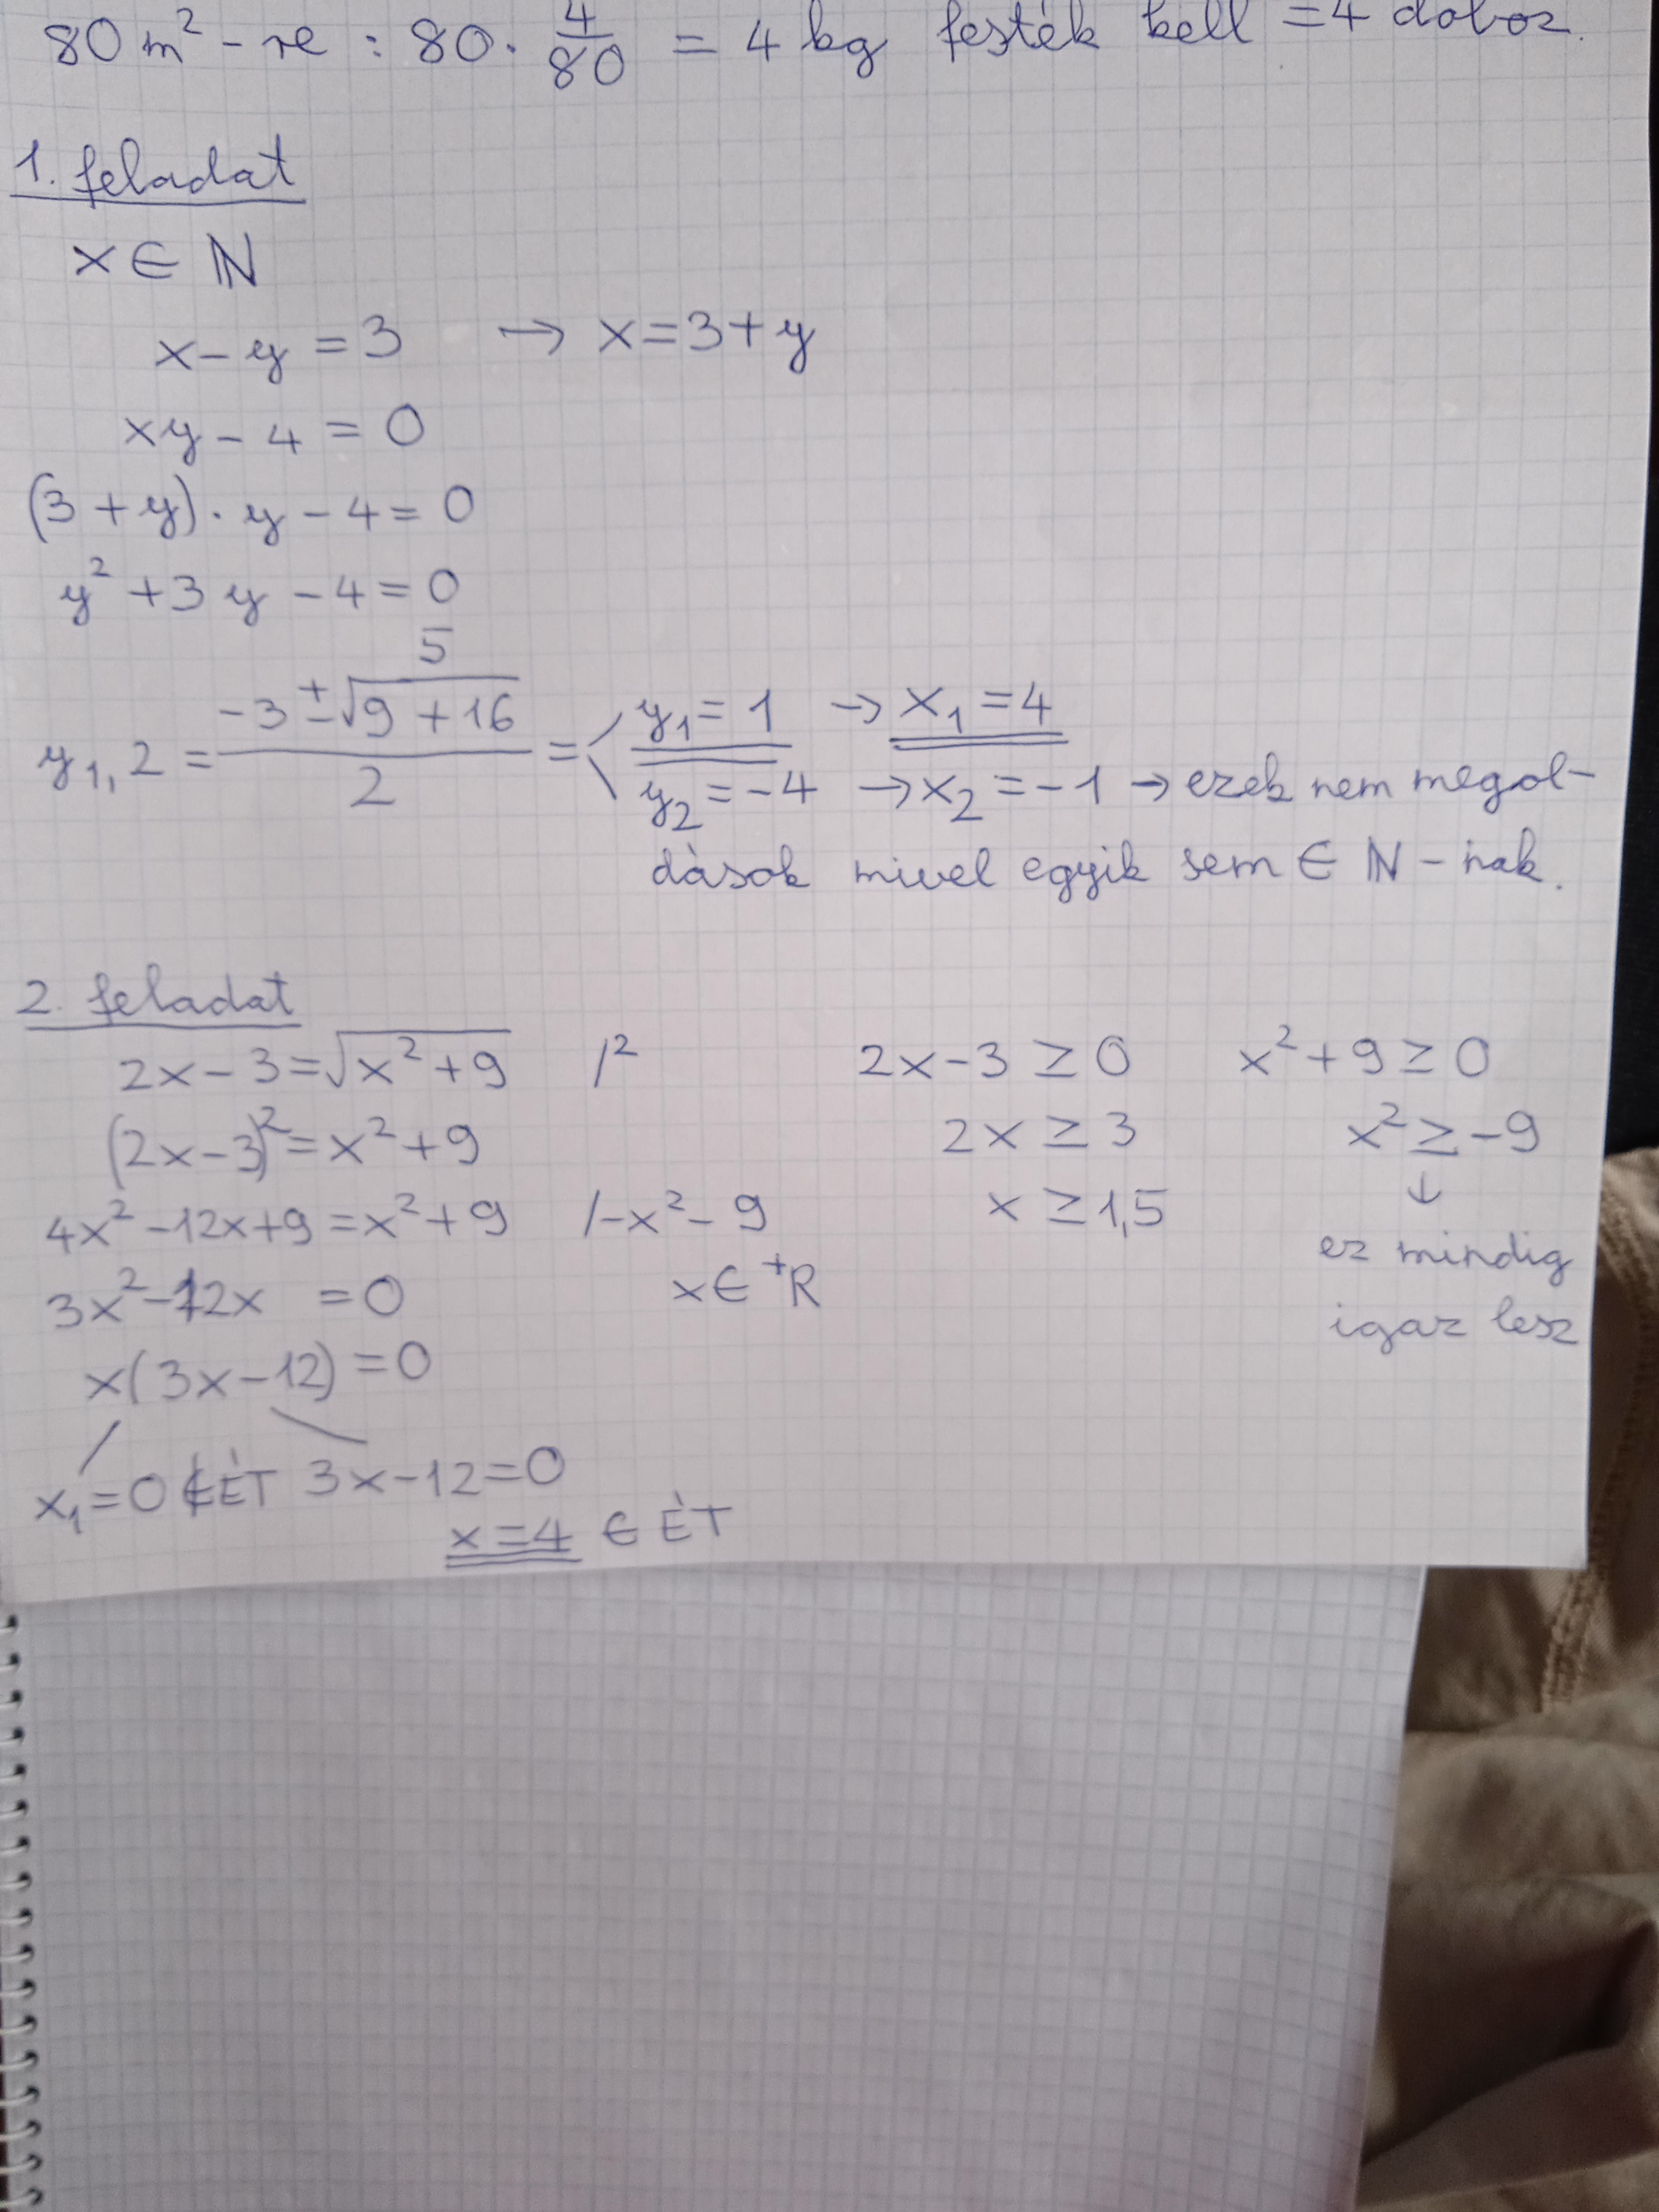 80 m² - re : 80 · 4/80 = 4 kg festék kell = 4 doboz.
1. feladat
x ∈ ℕ
x - y = 3 → x = 3 + y
xy - 4 = 0
(3 + y) · y - 4 = 0
y² + 3y - 4 = 0
5
y1,2 = (-3 ± √(9 + 16)) / 2 = < y₁ = 1 → x₁ = 4
y₂ = -4 → x₂ = -1 → ezek nem megol-
dások mivel egyik sem ∈ ℕ - nak.
2. feladat
2x - 3 = √(x² + 9) /² 2x - 3 ≥ 0 x² + 9 ≥ 0
(2x - 3)² = x² + 9 2x ≥ 3 x² ≥ -9
4x² - 12x + 9 = x² + 9 /-x² - 9 x ≥ 1,5 ↓
3x² - 12x = 0 x ∈ ⁺R ez mindig
x(3x - 12) = 0 igaz lesz
x₁ = 0 ∉ ÉT 3x - 12 = 0
x = 4 ∈ ÉT